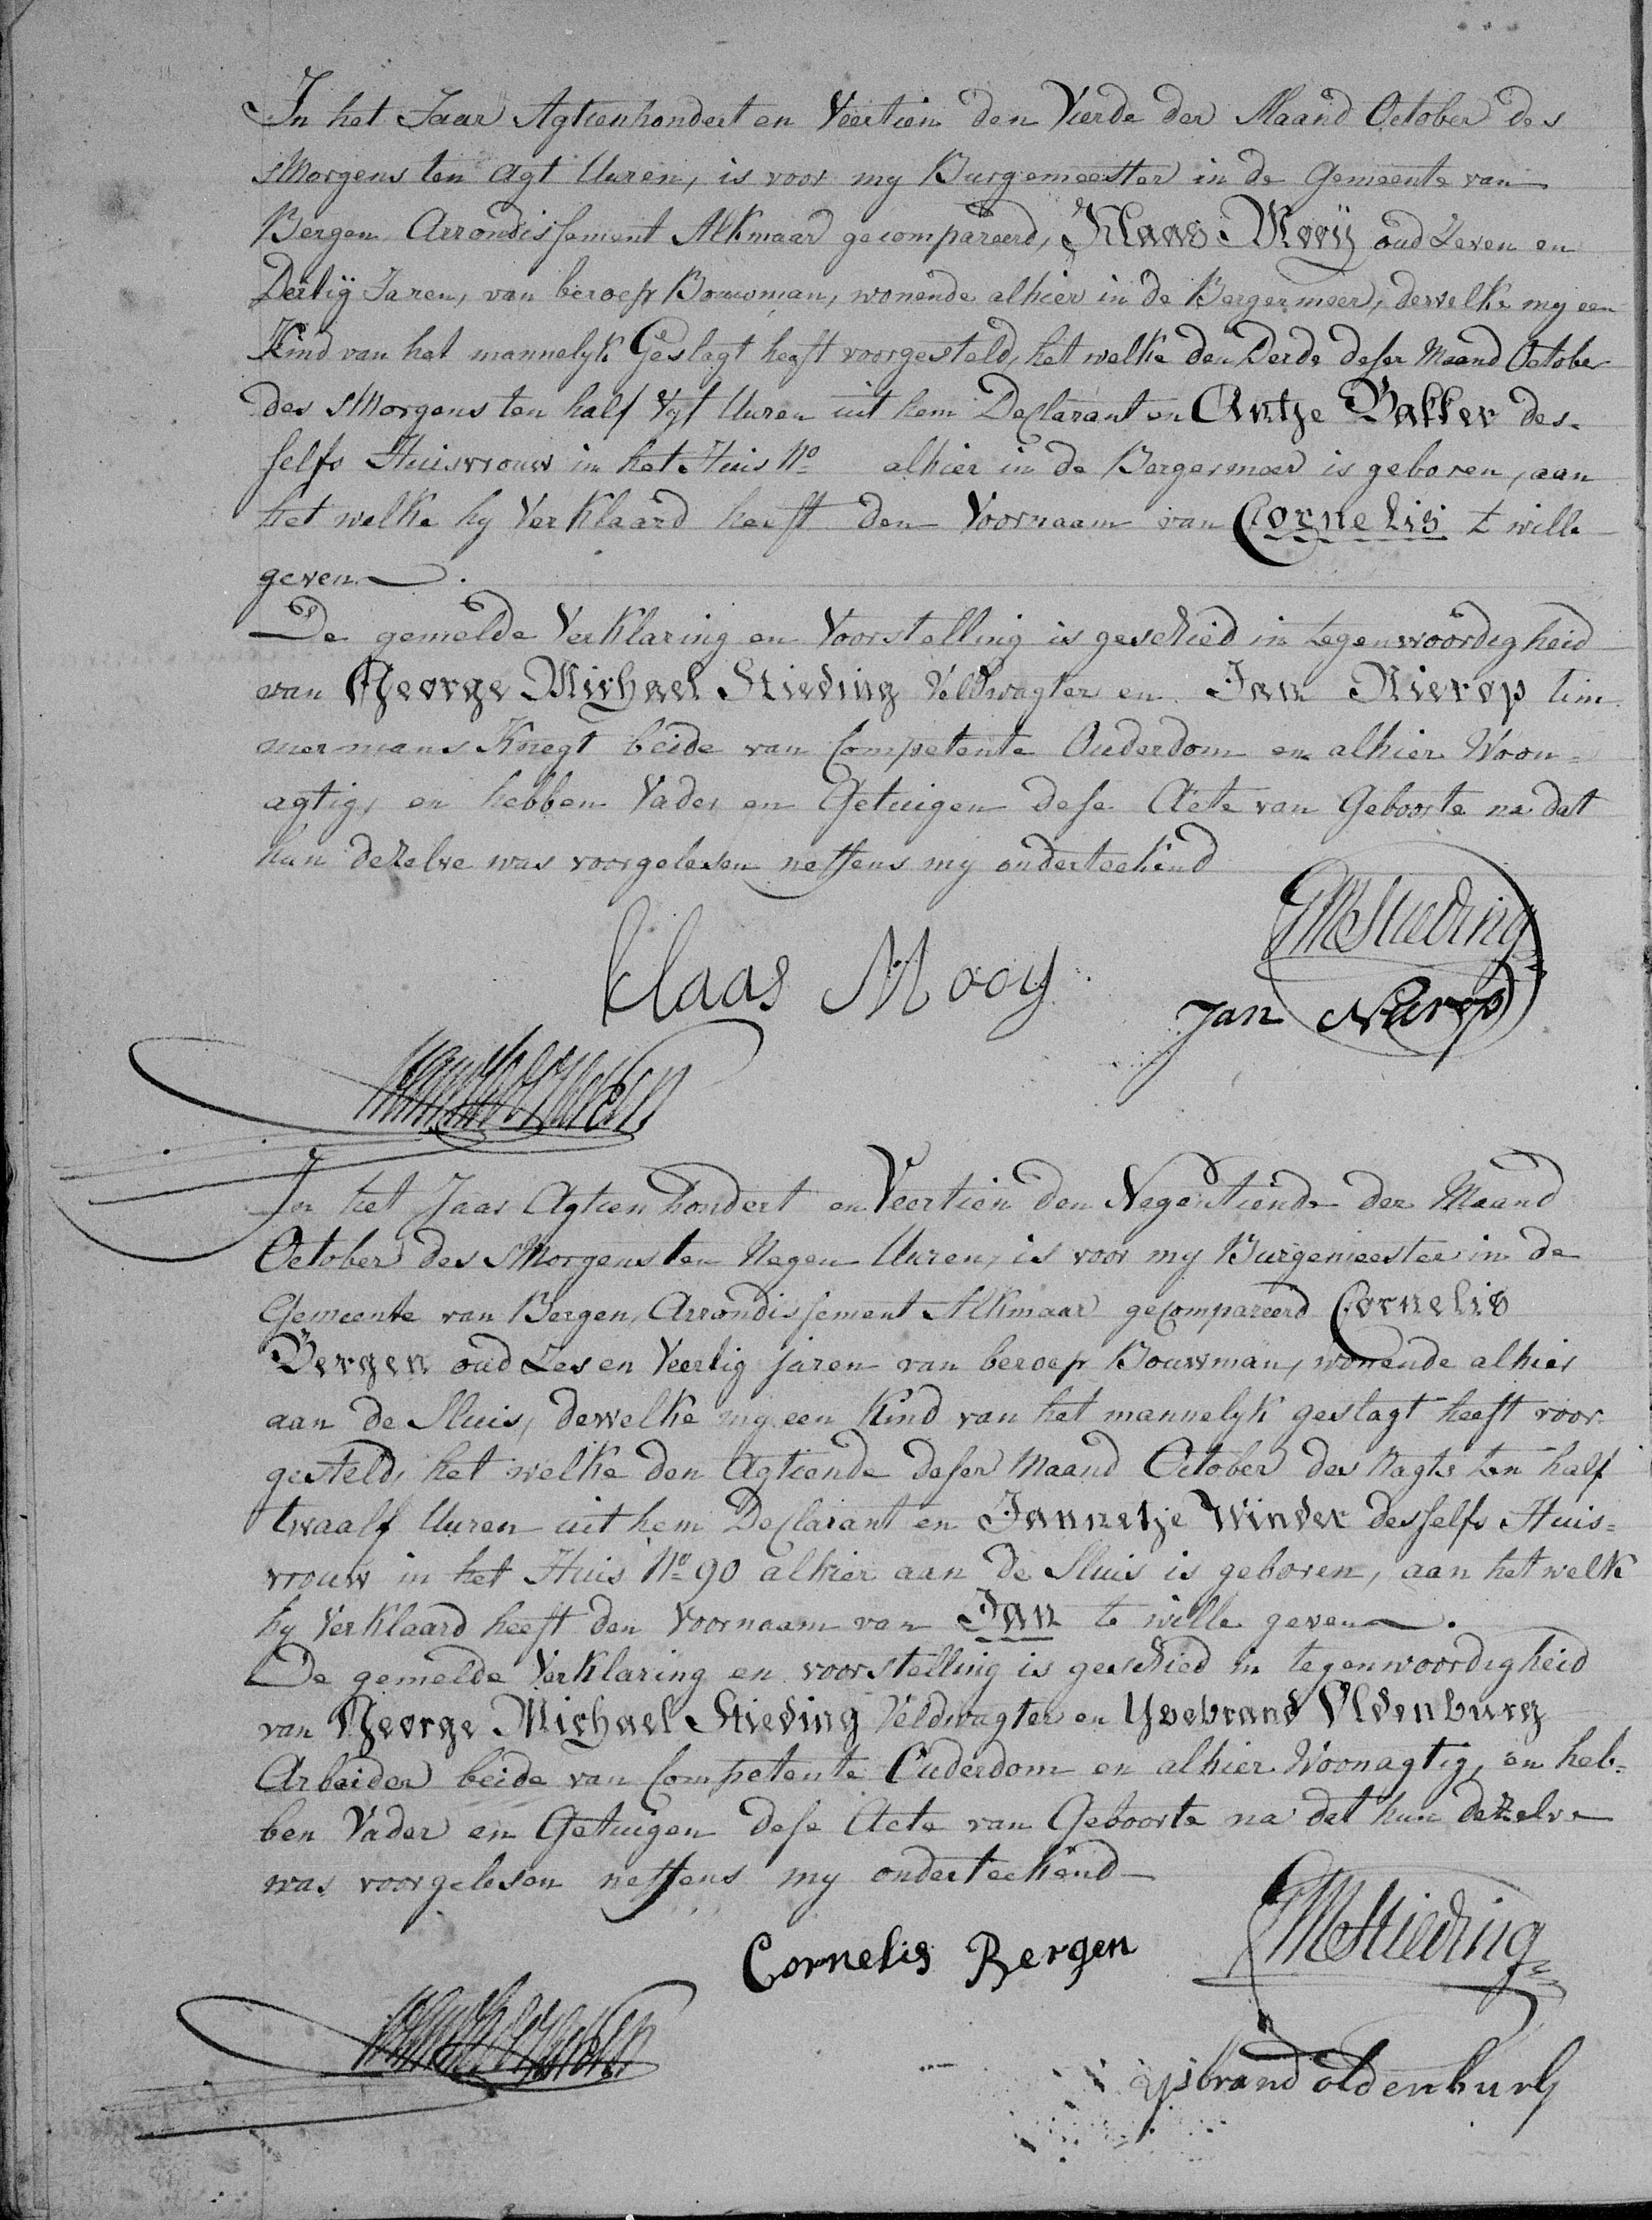 In het Jaar Agtienhondert en Veertien den Vierde der Maand October des
sMorgens ten Agt Uuren, is voor my Burgemeester in de Gemeente van
Bergen Arrondissement Alkmaar gecompareerd, Klaas Mooij oud Zeven en
Dertig Jaren, van beroep Bouwman, wonende alhier in de Bergermeer, dewelke my een
Kind van het mannelyk Geslagt heeft voorgesteld, het welke den Derde deser Maand October
des sMorgens ten half Vyf Uuren uit hem Declarant en Antje Bakker des-
selfs Huisvrouw in het Huis No alhier in de Bergermeer is geboren, aan
het welke hy Verklaard heeft den Voornaam van Cornelis t wille
geven.
De gemelde Verklaring en Voorstelling is geschied in tegenwoordigheid
van George Michael Stieding Veldwagter en Jan Nierop tim
mermans Knegt beide van Competente Ouderdom en alhier Woon=
agtig, en hebben Vader en Getuigen dese Acte van Geboorte na dat
hun dezelve was voorgelesen neffens my onderteekend
GMStieding
Klaas Mooy
Jan Nierop
In het Jaar Agtien hondert en Veertien den Negentiende der Maand
October des sMorgens ten Negen Uuren, is voor my Burgemeester in de
Gemeente van Bergen, Arrondissement Alkmaar gecompareerd Cornelis
Bergen oud Zes en Veertig jaren van beroep Bouwman, wonende alhier
aan de Sluis, dewelke my een Kind van het mannelyk geslagt heeft voor
gesteld, het welke den Agtiende deser Maand October des Nagts ten half
twaalf Uuren uit hem Declarant en Jannetje Winder desselfs Huis=
vrouw in het Huis No 90 alhier aan de Sluis is geboren, aan het welk
hy Verklaard heeft den Voornaam van Jan te wille geven.
De gemelde Verklaring en voorstelling is geschied in tegenwoordigheid
van George Michael Stieding Veldwagter en Ysebrand Oldenburg
Arbeider beide van Competente Ouderdom en alhier Woonagtig, en heb=
ben Vader en Getuigen dese Acte van Geboorte na dat hun dezelve
was voorgelesen neffens my onderteekend
GMStieding
Cornelis Bergen
ysbrand oldenburg